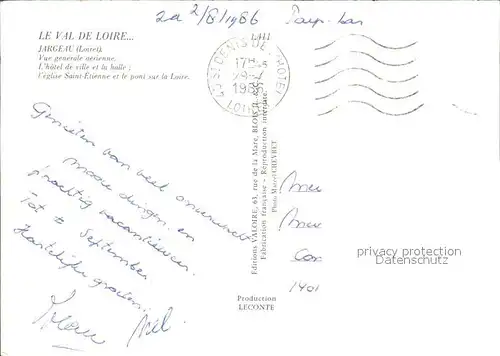 za 2/8/1986 Pays-bas
LE VAL DE LOIRE...
JARGEAU (Loiret).
Vue générale aérienne.
L'hôtel de ville et la halle ;
l'église Saint-Étienne et le pont sur la Loire.
1.411
45 ST DENIS DE L'HOTEL
LOIRET
Genieten van veel onverwacht
mooie dingen en
prachtig vacantieweer.
Tot ± September
Hartelijke groeten,
Editions VALOIRE, 63, rue de la Mare, BLOIS
Fabrication française - Reproduction interdite.
Photo Marcel CHEVRET
1401
privacy protection
watermark
Production
LECONTE